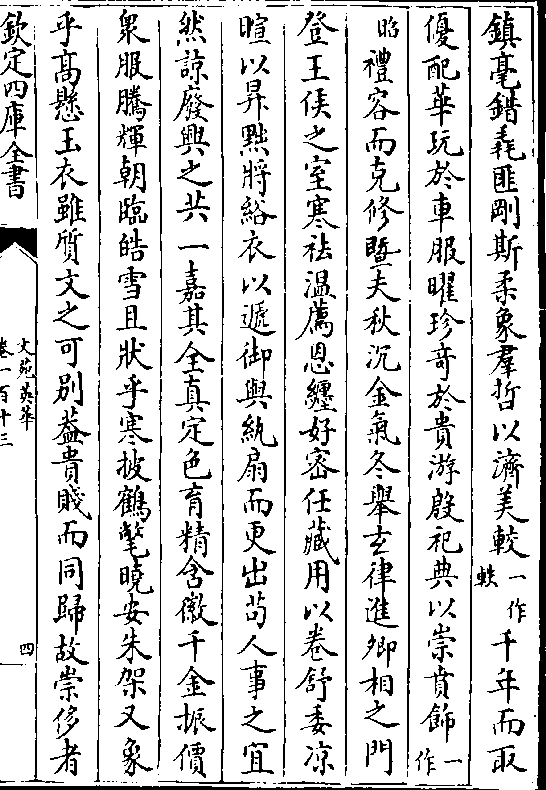 鎮亳錯毳匪剛斯柔象羣哲以濟美較一作軼千年而取
優配華玩於車服曜珍竒於貴游啟祀典以崇賁飾一作
昭禮容而克修暨夫秋沉金氣冬舉玄律進卿相之門
登王侯之室寒袪温薦恩纒好宻任藏用以卷舒委凉
暄以昇黜將絺衣以遞御與紈扇而更出茍人事之宜
然諒廢興之共一嘉其全真定色育精含徽千金振價
衆服騰輝朝臨皓雪且狀乎寒披鶴氅曉安朱架又象
乎髙懸玉衣雖質文之可別葢貴賤而同歸故崇侈者
欽定四庫全書
文苑英華
卷一百十三
四